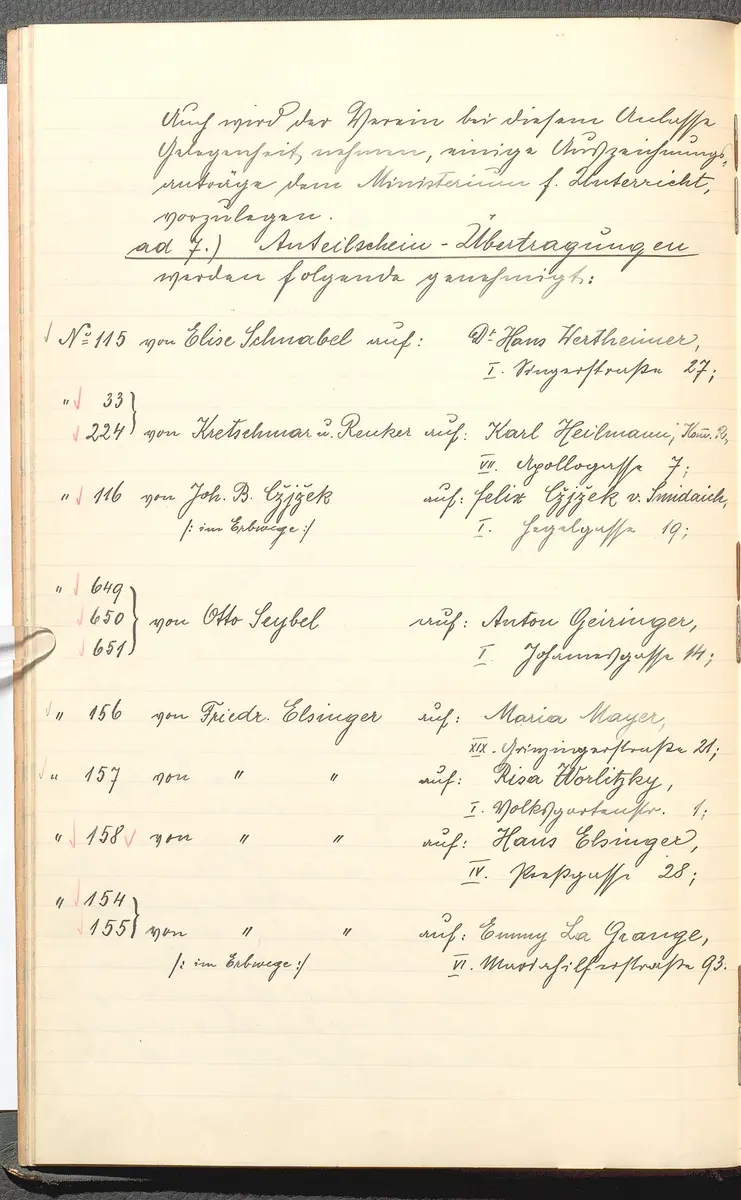 Auch wird der Verein bei diesem Anlasse
Gelegenheit nehmen, einige Auszeichnungs-
anträge dem Ministerium f. Unterricht,
vorzulegen.
ad 7.) Anteilschein-Übertragungen
werden folgende genehmigt:
No 115 von Elise Schnabel auf: Dr Hans Wertheimer,
I. Singerstraße 27;
" 33
224 von Kretschmar u. Renker auf: Karl Heilmann, Kom. R.,
VII. Apollogasse 7;
" 116 von Joh. B. Čžjžek auf: Felix Čžjžek v. Smidaich,
/: im Erbwege :/ I. Hegelgasse 19;
" 649
650 von Otto Seybel auf: Anton Geiringer,
651 I. Johannesgasse 14;
" 156 von Friedr. Elsinger auf: Maria Mayer,
XIX. Grinzingerstraße 21;
" 157 von " " auf: Risa Worlitzky,
I. Volksgartenstr. 1;
" 158 von " " auf: Hans Elsinger,
IV. Preßgasse 28;
" 154
155 von " " auf: Emmy La Grange,
/: im Erbwege :/ VI. Mariahilferstraße 93.